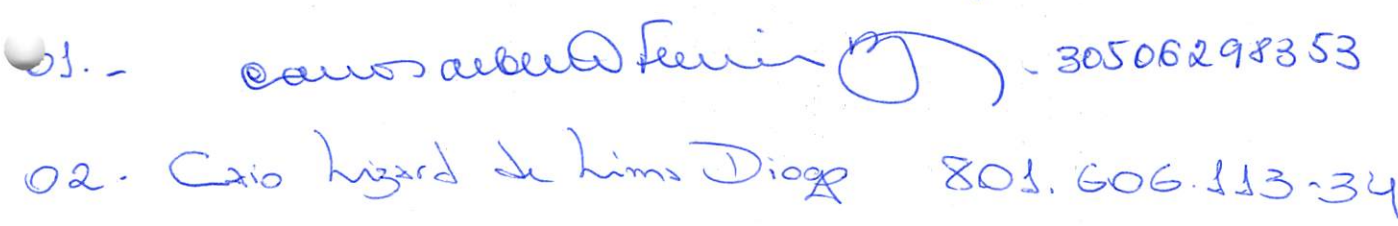 01.- Carlos Alberto Ferreira - 30506298353
02. Caio Lizard de Lima Diogo 801.606.113-34